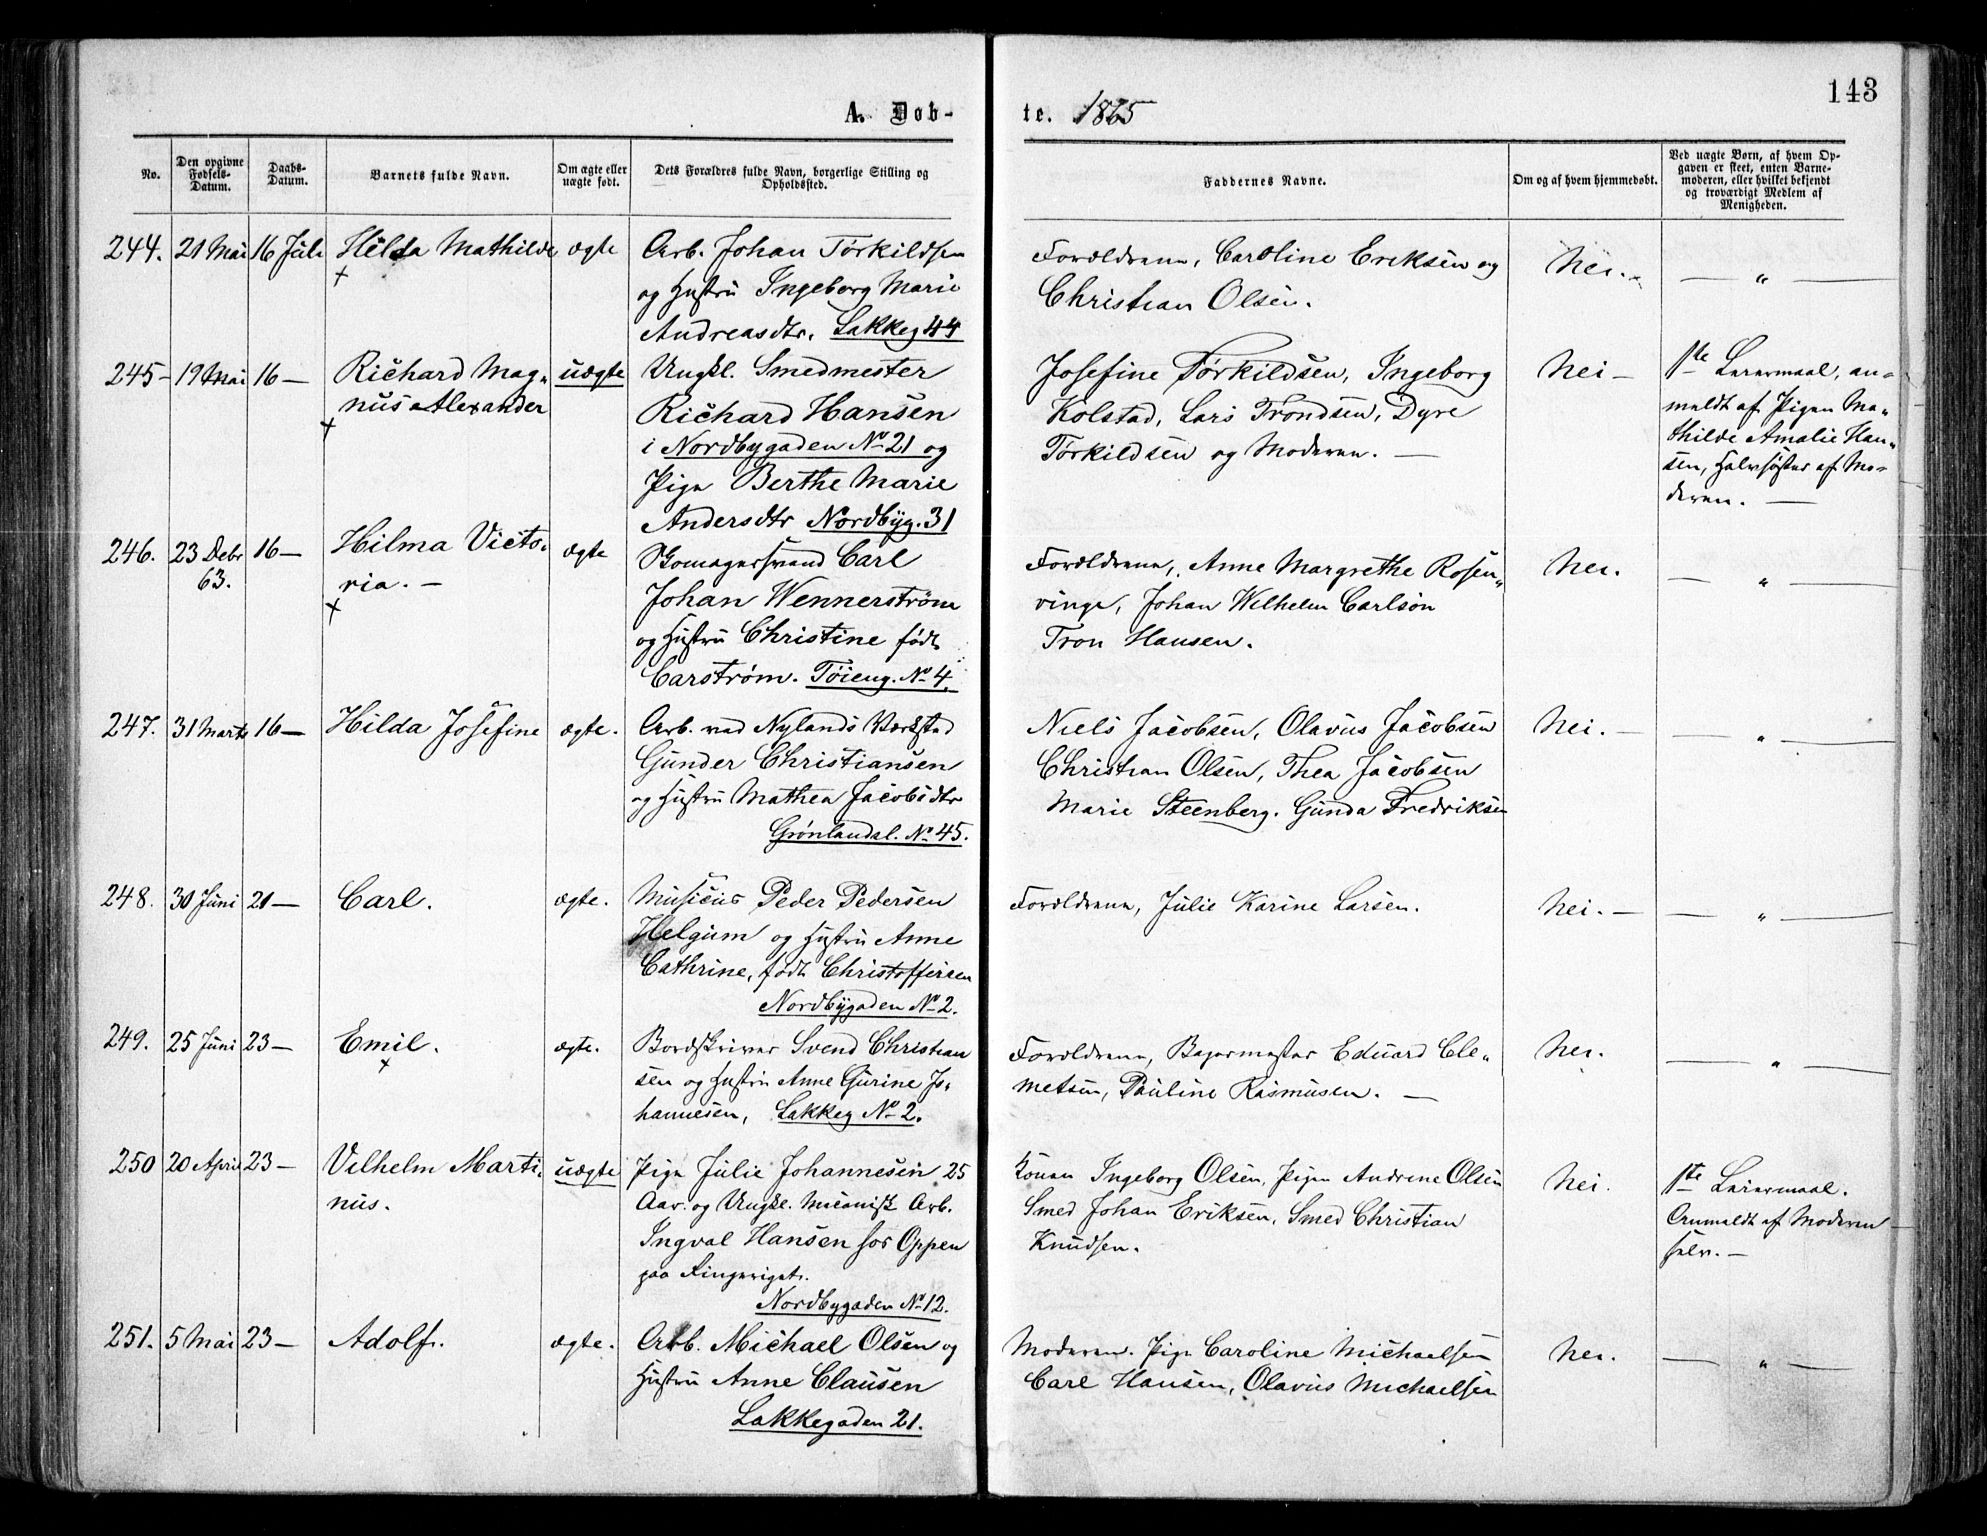 143
A. Døb-
te. 1865
No.
Den opgivne
Fødsels-
Datum.
Daabs-
Datum.
Barnets fulde Navn.
Om ægte eller
uægte født.
Dets Forældres fulde Navn, borgerlige Stilling og
Opholdssted.
Faddernes Navne.
Om og af hvem hjemmedøbt.
Ved uægte Børn, af hvem Op-
gaven er skeet, enten Barne-
moderen, eller hvilket bekjendt
og troværdigt Medlem af
Menigheden.
244. 21 Mai 16 Juli Hilda Mathilde ægte Arb. Johan Törkildsen
og Hustru Ingeborg Marie
Andreasdtr. Lakkeg 44
Forældrene, Caroline Eriksen og
Christian Olsen.
Nei. — „ —
245 - 19 Mai 16 — Richard Mag-
nus Alexander
uægte Ungkl. Smedmester
Richard Hansen
i Nordbygaden No 21 og
Pige Berthe Marie
Andersdtr Nordbyg. 31
Josefine Törkildsen, Ingeborg
Kolstad, Lars Trondsen, Dyre
Törkildsen og Moderen. —
Nei —
1ste Leiermaal, an-
meldt af Pigen Ma-
thilde Amalie Han-
sen, Halvsøster af Mo-
deren. —
246. 23 Debr
63.
16 — Hilma Victo-
ria. —
ægte Skomagersvend Carl
Johan Wennerström
og Hustru Christine født
Carström. Töieng. No 4.
Forældrene, Anne Margrethe Rosen-
vinge, Johan Wilhelm Carlson
Tron Hansen.
Nei. — „ —
247. 31 Marts 16 — Hilda Josefine ægte. Arb. ved Nylands Værksted
Gunder Christiansen
og Hustru Mathea Jacobsdtr
Grønlandsl. No 45.
Niels Jacobsen, Olavus Jacobsen
Christian Olsen, Thea Jacobsen
Marie Steenberg. Gunda Fredriksen
Nei. — „ —
248. 30 Juni 21 — Carl. ægte. Musicus Peder Pedersen
Helgum og Hustru Anne
Cathrine, født Christoffersen
Nordbygaden No 2.
Forældrene, Julie Karine Larsen.
Nei. — „ —
249. 25 Juni 23 — Emil. ægte. Bordskriver Svend Christian
sen og Hustru Anne Gurine Jo-
hannesen, Lakkeg No 2.
Forældrene, Bagermester Eduard Cle-
metsen, Pauline Rasmusen. —
Nei. — „ —
250 20 April 23 — Vilhelm Marti-
nus.
uægte Pige Julie Johannesen 25
Aar. og Ungkl. Mecanisk Arb.
Ingval Hansen hos Oppen
paa Ringeriget.
Nordbygaden No 12.
Konen Ingeborg Olsen, Pigen Andrine Olsen
Smed Johan Eriksen, Smed Christian
Knudsen.
Nei.
1ste Leiermaal.
Anmeldt af Moderen
selv. —
251. 5 Mai 23 — Adolf. ægte. Arb. Michael Olsen og
Hustru Anne Clausen
Lakkegaden 21.
Moderen. Pige Caroline Michaelsen
Carl Hansen, Olavus Michaelsen
Nei. — „ —